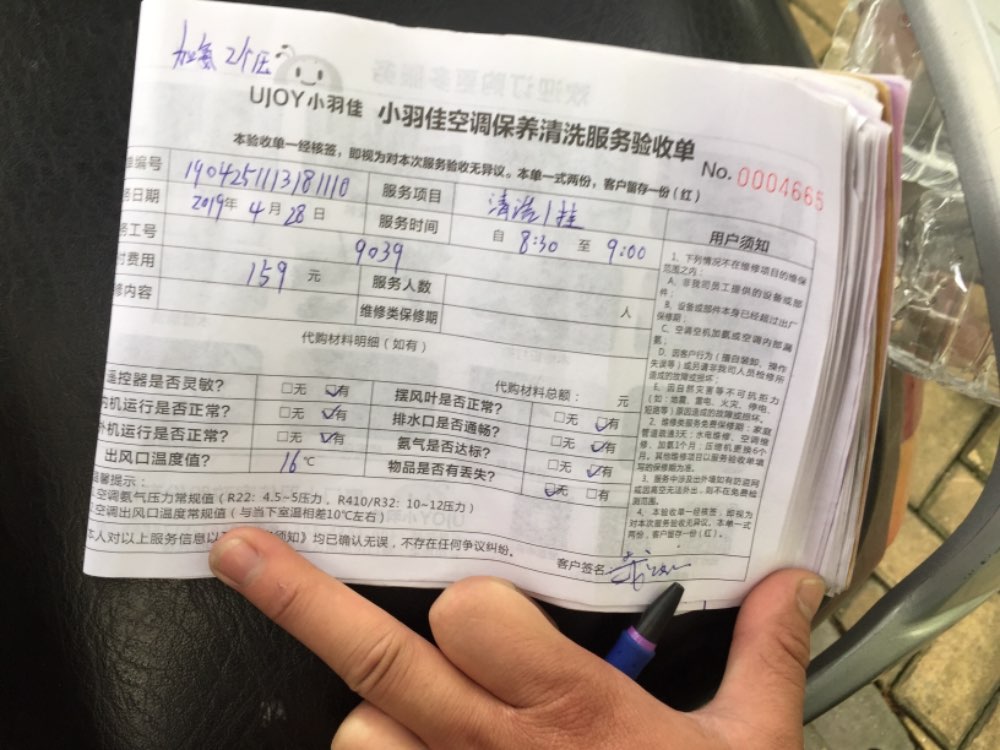 加氨 2个压
UJOY小羽佳 小羽佳空调保养清洗服务验收单
本验收单一经核签，即视为对本次服务验收无异议。本单一式两份，客户留存一份（红）
No. 0004665
编号 1904251113181110 服务项目 清洗1挂
日期 2019年 4月 28日 服务时间 自 8:30 至 9:00
工号 9039
费用 159 元 服务人数 人
内容 维修类保修期
代购材料明细（如有）
代购材料总额： 元
遥控器是否灵敏? □无 ☑有 摆风叶是否正常? □无 ☑有
机运行是否正常? □无 ☑有 排水口是否通畅? □无 ☑有
外机运行是否正常? □无 ☑有 氨气是否达标? □无 ☑有
出风口温度值? 16℃ 物品是否有丢失? ☑无 □有
温馨提示：
空调氨气压力常规值（R22: 4.5~5压力, R410/R32: 10~12压力）
空调出风口温度常规值（与当下室温相差10℃左右）
本人对以上服务信息以 须知》均已确认无误，不存在任何争议纠纷。
客户签名:
用户须知
1、下列情况不在维修项目的维保
范围之内：
A、非我司员工提供的设备或部
件；
B、设备或部件本身已经超过出厂
保修期；
C、空调空机加氨或空调内部漏
氨；
D、因客户行为（擅自装卸、操作
失误等）或另请非我司人员检修所
造成的故障或损坏；
E、因自然灾害等不可抗能力
（如：地震、雷电、火灾、停电、
短路等）原因造成的故障或损坏。
2、维修类服务免费保修期：家庭
管道疏通3天；水电维修、空调维
修、加氨1个月；压缩机更换6个
月。其他维修项目以服务验收单填
写的保修期为准。
3、服务中涉及出外墙如有防盗网
或因高空无法外出，则不在免费检
测范围。
4、本验收单一经核签，即视为
对本次服务验收无异议。本单一式
两份，客户留存一份（红）。